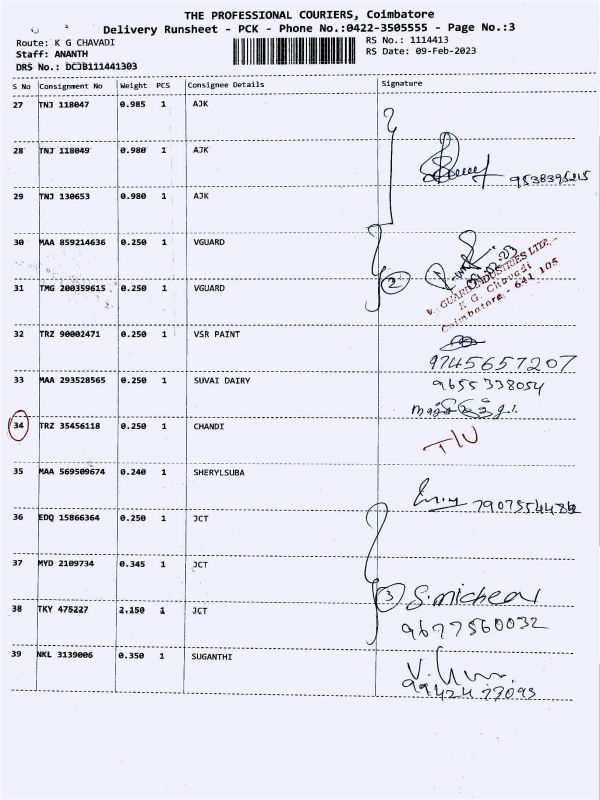 THE PROFESSIONAL COURIERS, Coimbatore
Delivery Runsheet - PCK - Phone No.:0422-3505555 - Page No.:3
Route: K G CHAVADI
RS No.: 1114413
Staff: ANANTH
RS Date: 09-Feb-2023
DRS No.: DCJB111441303
S No Consignment No Weight PCS Consignee Details Signature
27 TNJ 118047 0.985 1 AJK
28 TNJ 118049 0.980 1 AJK
29 TNJ 130653 0.980 1 AJK
30 MAA 859214636 0.250 1 VGUARD
V. GUARD INDUSTRIES LTD.
K G Chavadi
Coimbatore - 641 105
31 TMG 200359615 0.250 1 VGUARD 2
32 TRZ 90002471 0.250 1 VSR PAINT
9745657207
33 MAA 293528565 0.250 1 SUVAI DAIRY 9655338054
34 TRZ 35456118 0.250 1 CHANDI
35 MAA 569509674 0.240 1 SHERYLSUBA
36 EDQ 15866364 0.250 1 JCT
37 MYD 2109734 0.345 1 JCT
3 S.micheal
38 TKY 475227 2.150 1 JCT
9677560032
39 NKL 3139006 0.350 1 SUGANTHI